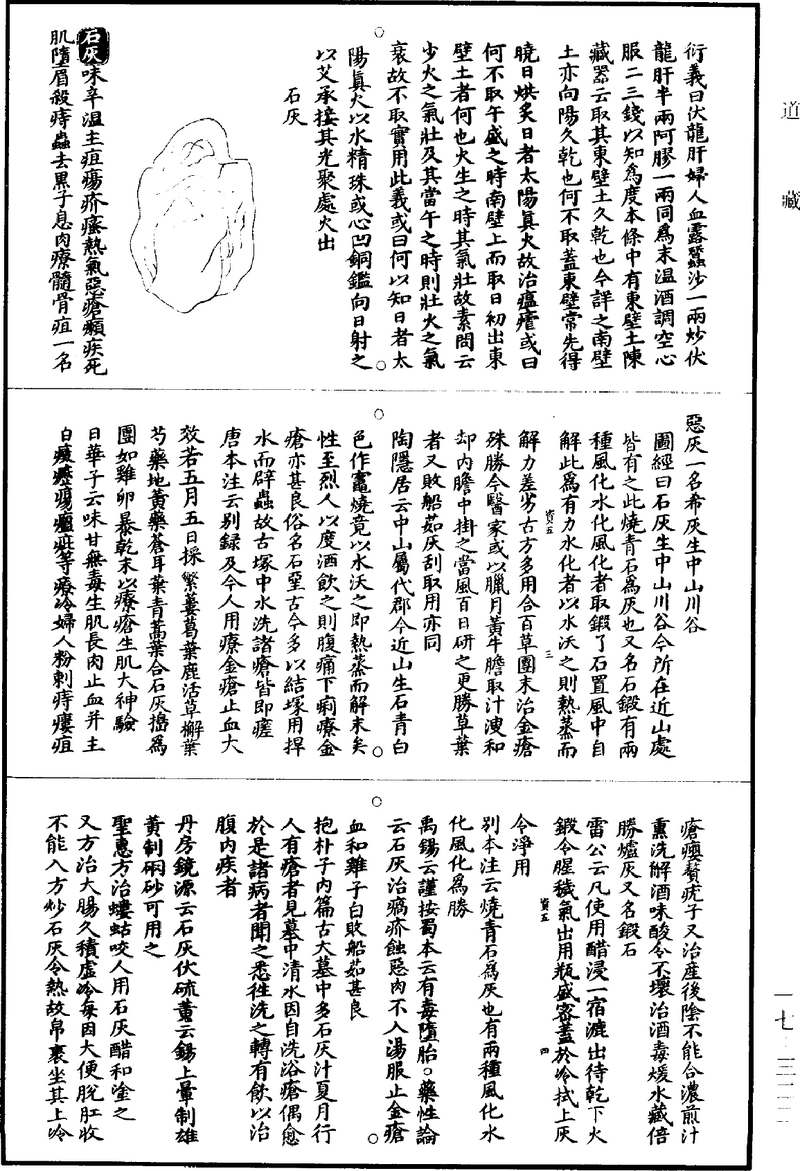 道藏
衍義曰伏龍肝婦人血露蠶沙一兩炒伏
龍肝半兩阿膠一兩同爲末温酒調空心
服二三錢以知爲度本條中有東壁土陳
藏器云取其東壁土久乾也今詳之南壁
土亦向陽久乾也何不取蓋東壁常先得
曉日烘炙日者太陽真火故治瘟瘧或曰
何不取午盛之時南壁上而取日初出東
壁土者何也火生之時其氣壯故素問云
少火之氣壯及其當午之時則壯火之氣
衰故不取實用此義或曰何以知日者太
陽真火以水精珠或心凹銅鑑向日射之
以艾承接其光聚處火出
石灰
石灰味辛温主疽瘍疥瘙熱氣惡瘡癩疾死
肌墮眉殺痔蟲去黑子息肉療髓骨疽一名
惡灰一名希灰生中山川谷
圖經曰石灰生中山川谷今所在近山處
皆有之此燒青石爲灰也又名石鍛有兩
種風化水化風化者取鍛了石置風中自
解此爲有力水化者以水沃之則熱蒸而
解力差劣古方多用合百草團末治金瘡
殊勝今醫家或以臘月黃牛膽取汁溲和
却内膽中掛之當風百日研之更勝草葉
者又敗船茹灰刮取用亦同
陶隱居云中山屬代郡今近山生石青白
色作竈燒竟以水沃之即熱蒸而解末矣
性至烈人以度酒飲之則腹痛下痢療金
瘡亦甚良俗名石堊古今多以結塚用捍
水而辟蟲故古塚中水洗諸瘡皆即瘥
唐本注云別録及今人用療金瘡止血大
效若五月五日採蘩蔞葛葉鹿活草槲葉
芍藥地黃葉蒼耳葉青蒿葉合石灰搗爲
團如雞卵暴乾末以療瘡生肌大神驗
日華子云味甘無毒生肌長肉止血并主
白癜癧瘍瘢疵等療冷婦人粉刺痔瘻疽
瘡癭贅疣子又治產後陰不能合濃煎汁
熏洗解酒味酸令不壞治酒毒煖水藏倍
勝爐灰又名鍛石
雷公云凡使用醋浸一宿漉出待乾下火
鍛令腥穢氣出用瓶盛密蓋於冷拭上灰
令淨用
別本注云燒青石爲灰也有兩種風化水
化風化爲勝
禹錫云謹按蜀本云有毒墮胎。藥性論
云石灰治瘑疥蝕惡肉不入湯服止金瘡
血和雞子白敗船茹甚良
抱朴子内篇古大墓中多石灰汁夏月行
人有瘡者見墓中清水因自洗浴瘡偶愈
於是諸病者聞之悉往洗之轉有飲以治
腹内疾者
丹房鏡源云石灰伏硫黃云錫上暈制雄
黃制硇砂可用之
聖惠方治螻蛄咬人用石灰醋和塗之
又方治大腸久積虛冷每因大便脫肛收
不能入方炒石灰令熱故帛裹坐其上冷
資五
三
資五
四
一七·三二二